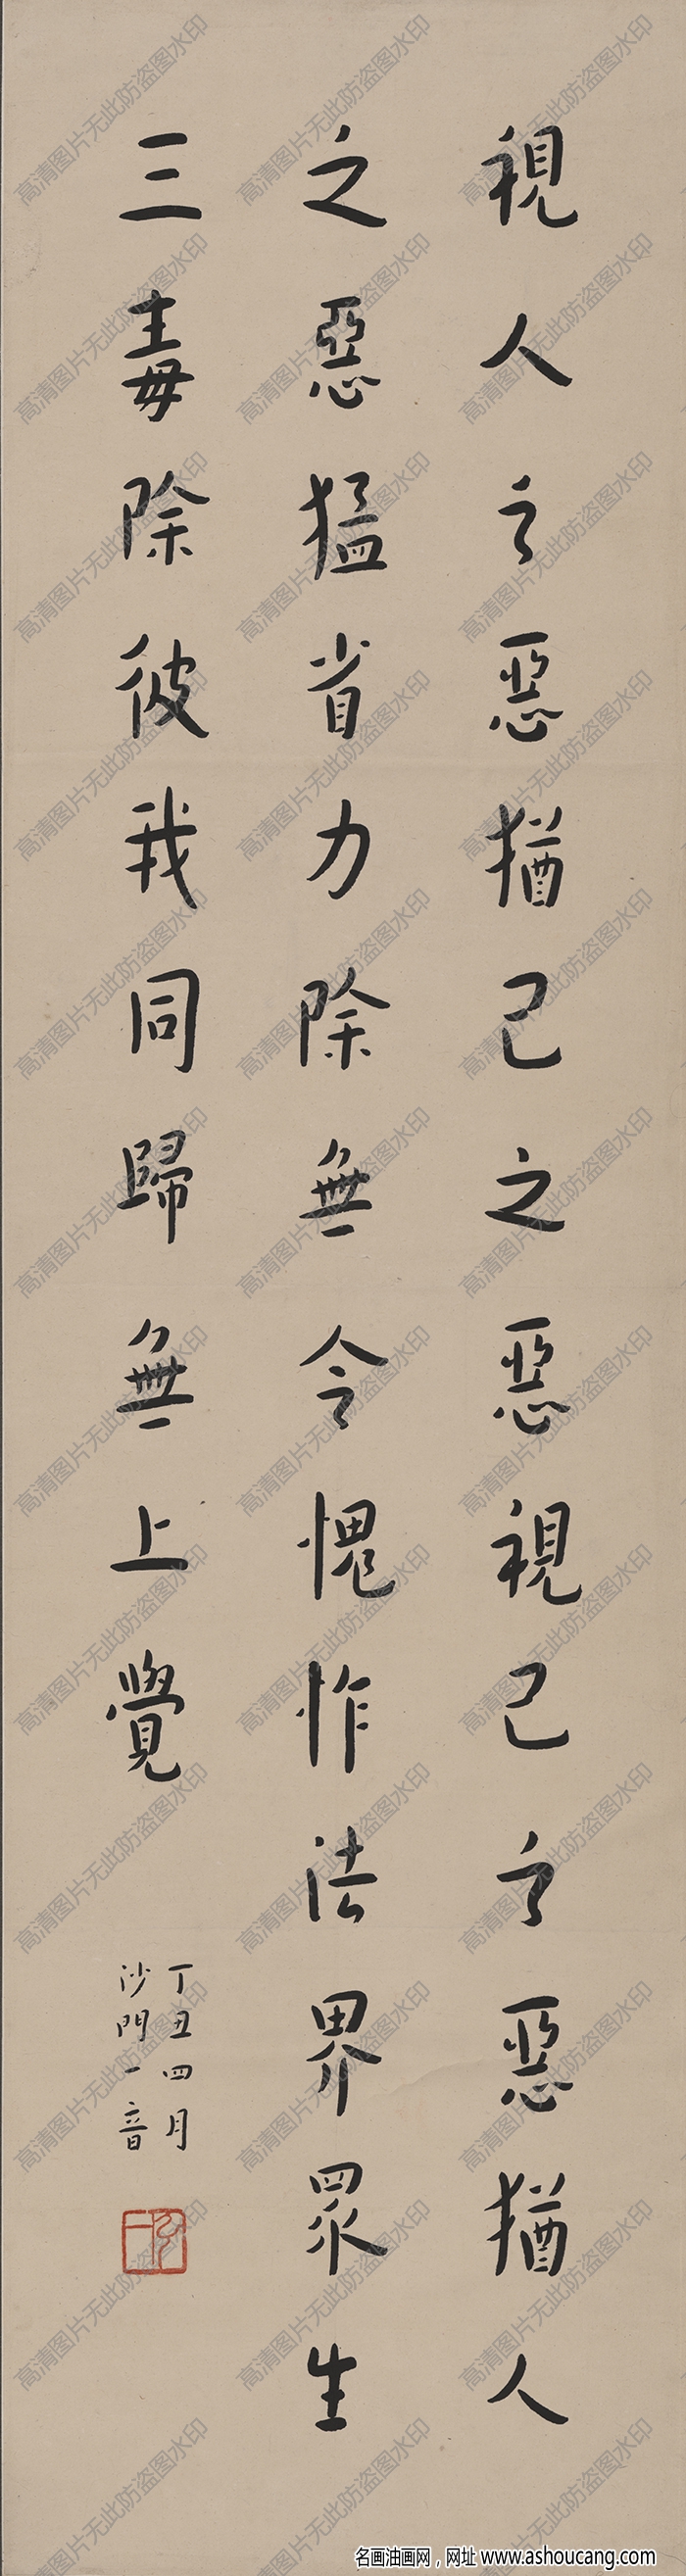 視人之惡猶己之惡視己之惡猶人
之惡猛省力除無令愧怍法界眾生
三毒除彼我同歸無上覺
丁丑四月
沙門一音
高清图片无此防盗图水印
名画油画网，网址 www.ashoucang.com